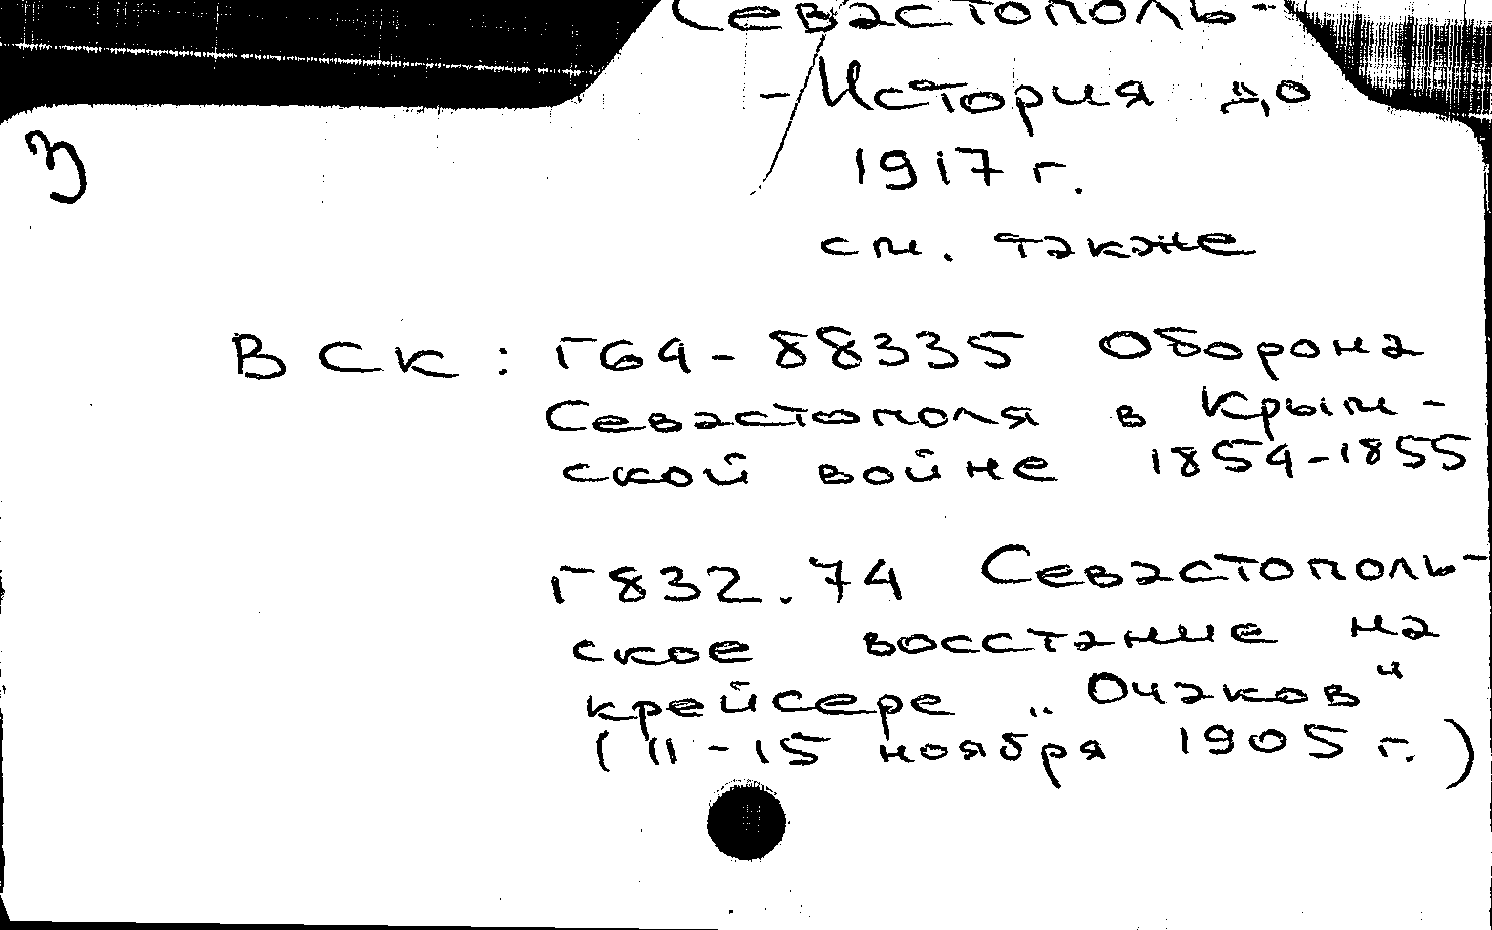 Севастополь-
- История до
1917 г.
см. также
3
ВСК: Г64-88335 Оборона
Севастополя в Крым-
ской войне 1854-1855
Г832.74 Севастополь-
ское восстание на
крейсере „Очаков“
(11-15 ноября 1905 г.)